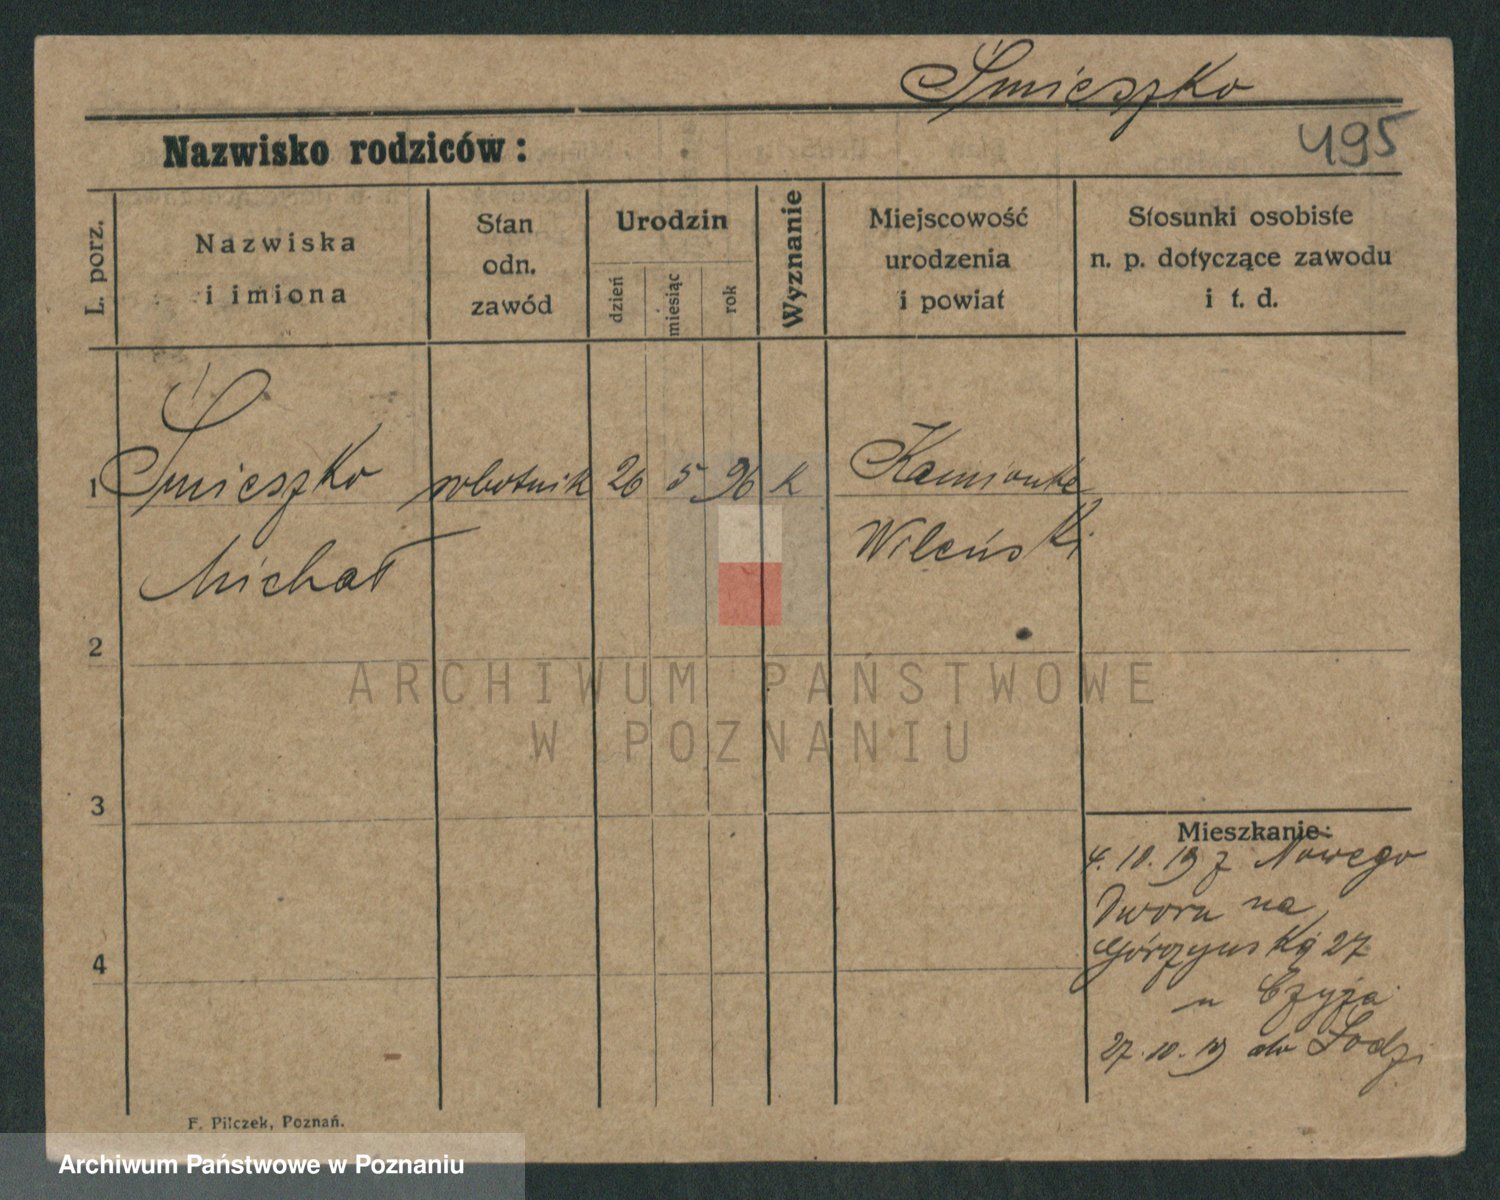 Śmieszko
495
Nazwisko rodziców:
L. porz.
Nazwiska
i imiona
Stan
odn.
zawód
Urodzin
dzień
miesiąc
rok
Wyznanie
Miejscowość
urodzenia
i powiat
Stosunki osobiste
n. p. dotyczące zawodu
i t. d.
1 Śmieszko robotnik 26 5 96 k Kamionka
Michał Wileński
2
ARCHIWUM PAŃSTWOWE
W POZNANIU
3
Mieszkanie:
4. 10. 19 z Nowego
Dworu na
Górczyńską 27
4
u Czyża
27. 10. 19 do Łodzi
F. Pilczek, Poznań.
Archiwum Państwowe w Poznaniu